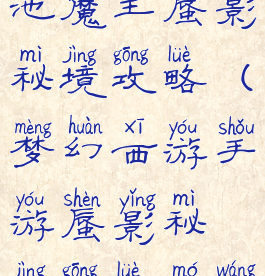 池魔王蜃影
mì jìng gōng lüè
秘境攻略（
mèng huàn xī yóu shǒu
梦幻西游手
yóu shèn yǐng mì
游蜃影秘
jìng gōng lüè mó wáng